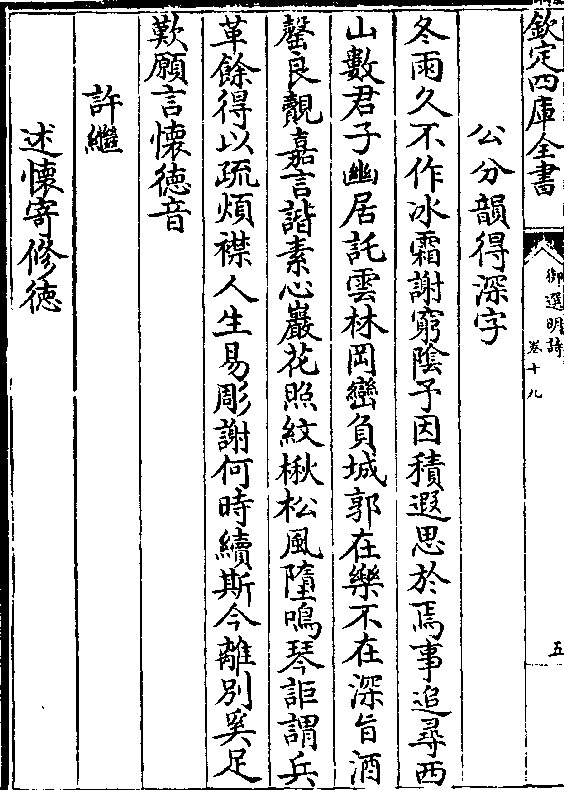 欽定四庫全書
御選明詩
卷十九
五
公分韻得深字
冬雨久不作冰霜謝窮陰予因積遐思於焉事追尋西
山數君子幽居託雲林岡巒負城郭在樂不在深旨酒
罄良覿嘉言諧素心巖花照紋楸松風墮鳴琴詎謂兵
革餘得以疏煩襟人生易彫謝何時續斯今離別奚足
歎願言懷德音
許繼
述懷寄修徳